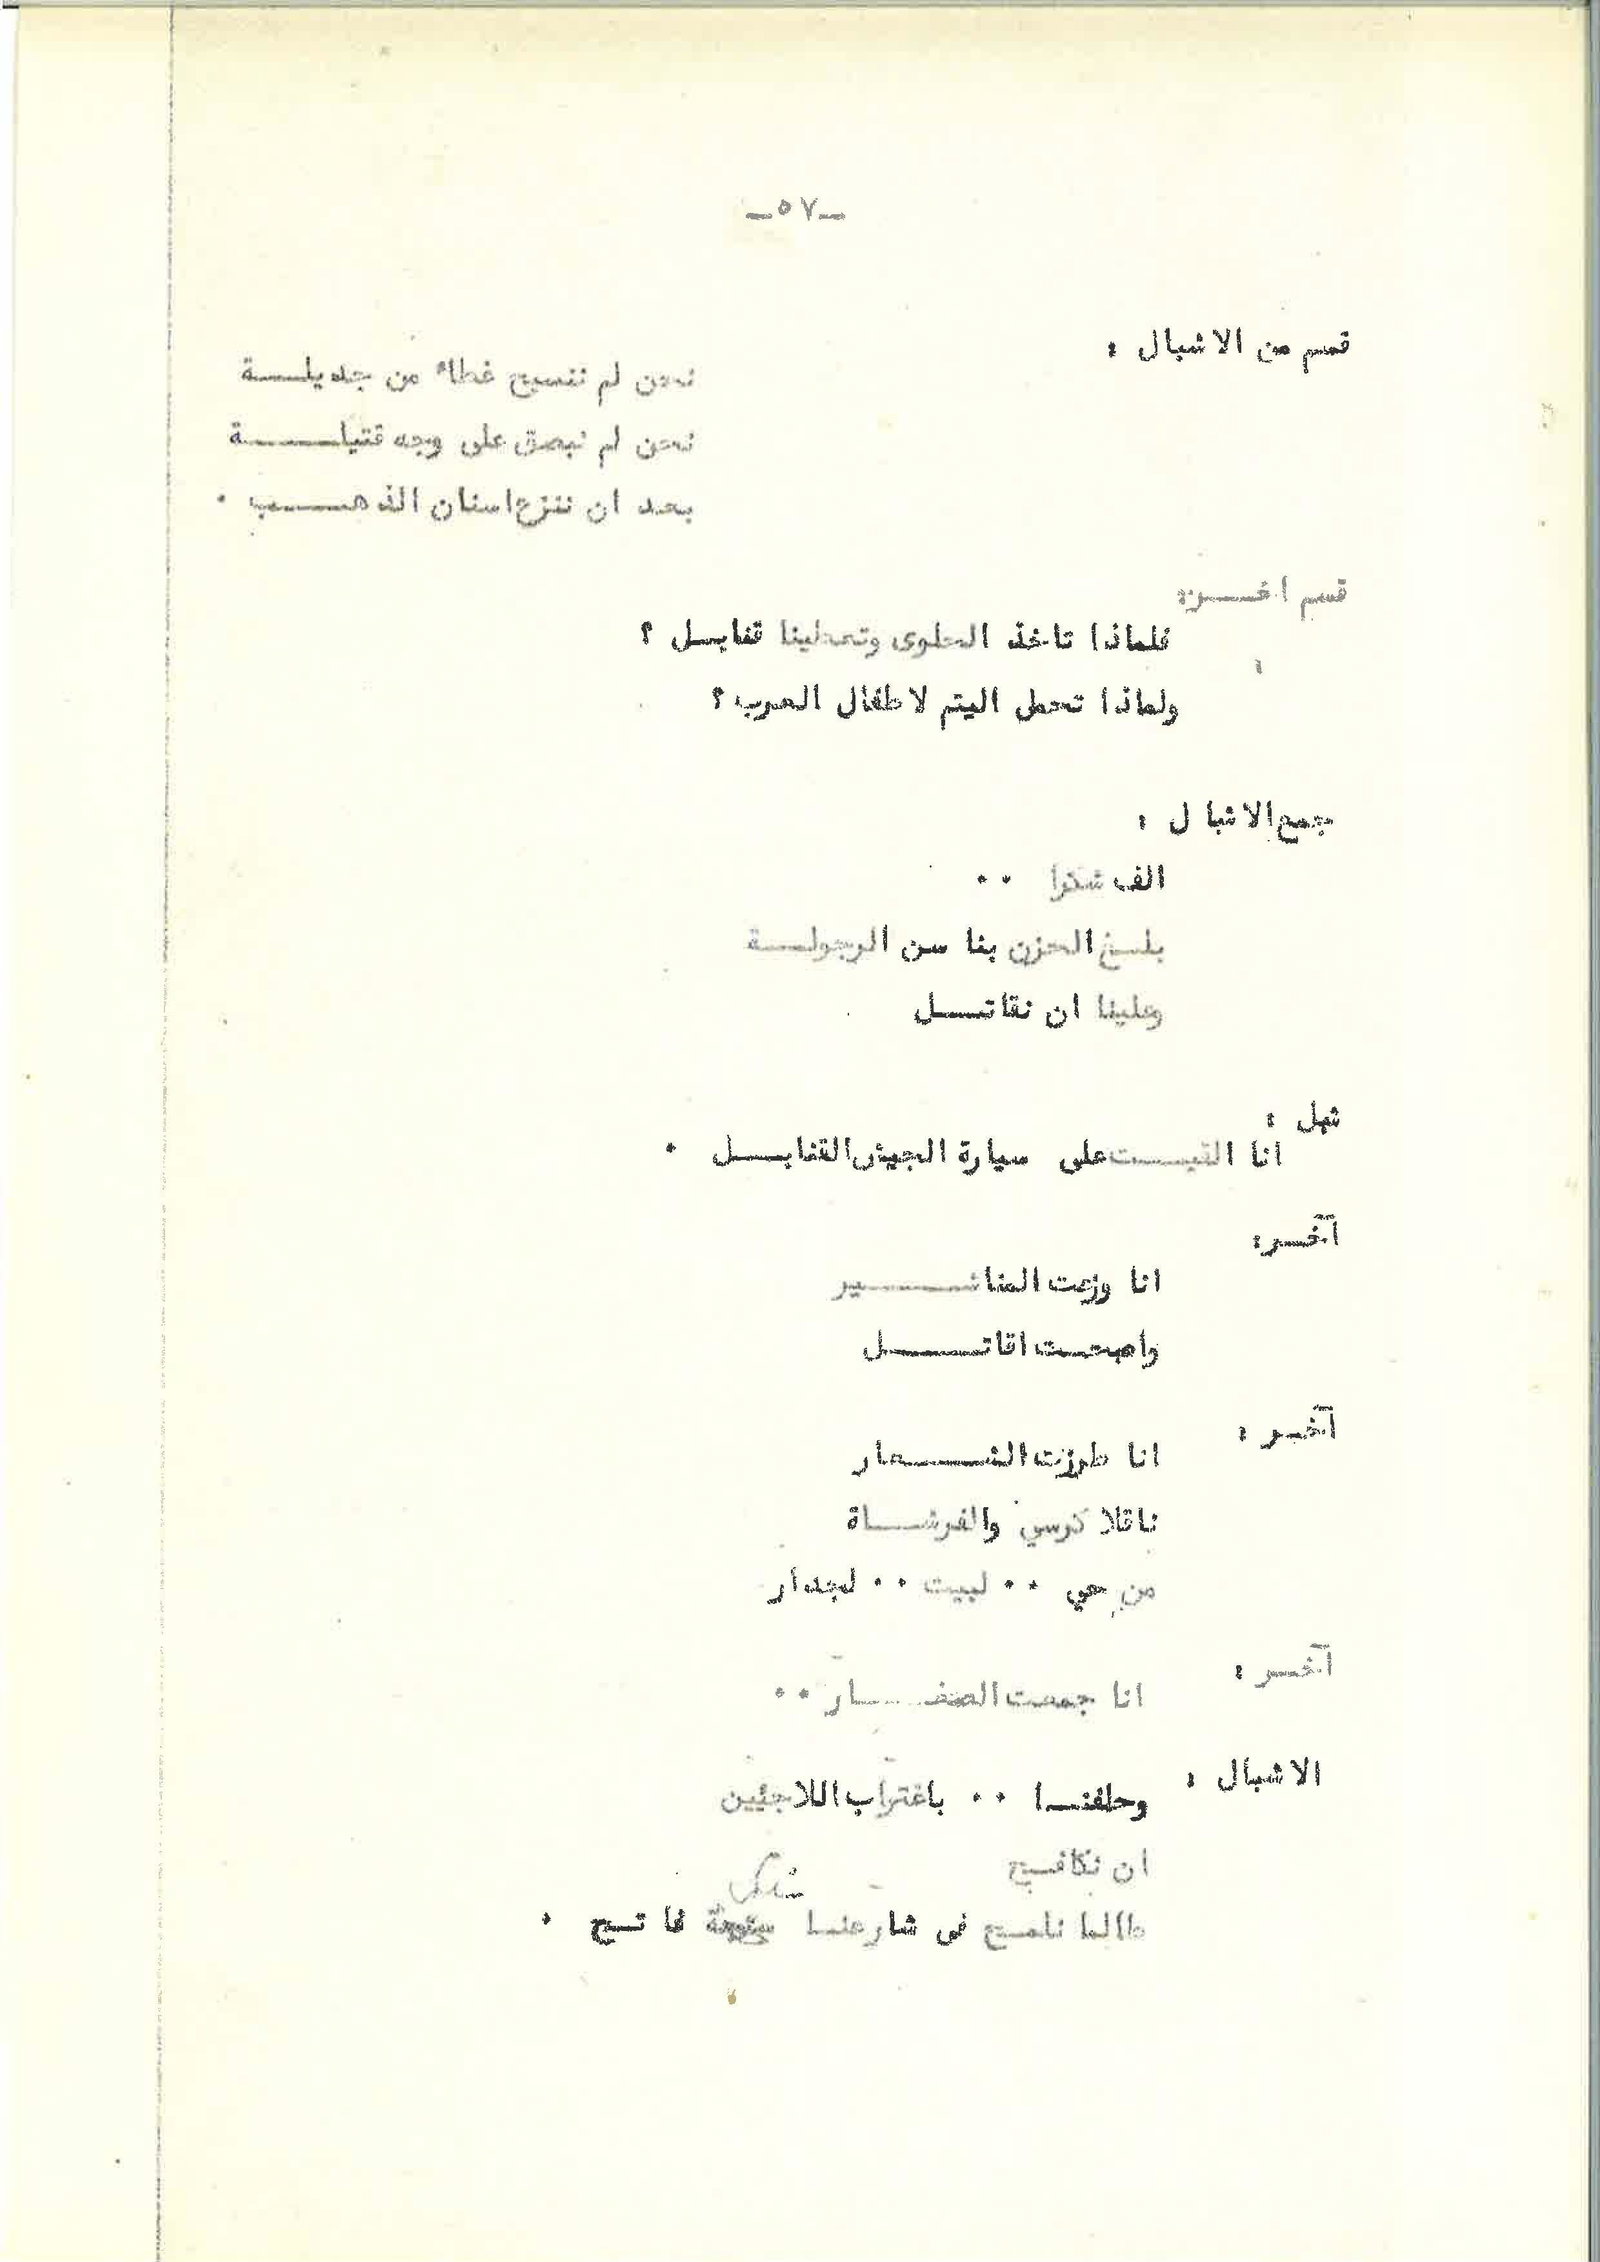 -٥٧-
قسم من الاشبال :
نحن لم ننسج غطاء من جديلـــة
نحن لم نبصق على وجه قتيلـــــة
بعد ان ننزع اسنان الذهـــب .
قسم اخــر:
فلماذا تاخذ الحلوى وتعطينا قنابـل ؟
ولماذا تحمل اليتم لاطفال العرب ؟
جمع الاشبال :
الف شكرا ..
بلـغ الحزن بنا سن الرجولـــة
وعلينا ان نقاتــل
شبل :
انا القيـــت على سيارة الجيش القنابــل .
آخـر:
انا وزعت المناشـــــير
واصبحــت اقاتـــــل
آخـر :
انا طرزت الشـــــعار
ناقلا كرسي والفرشــاة
من حي .. لبيت .. لجدار
آخـر :
انا جمعت الصغـــار ..
الاشبال :
وحلفنــا .. باغتراب اللاجئين
ان نكافـح
طالما نلمـح في شارعنــا فاتــح .